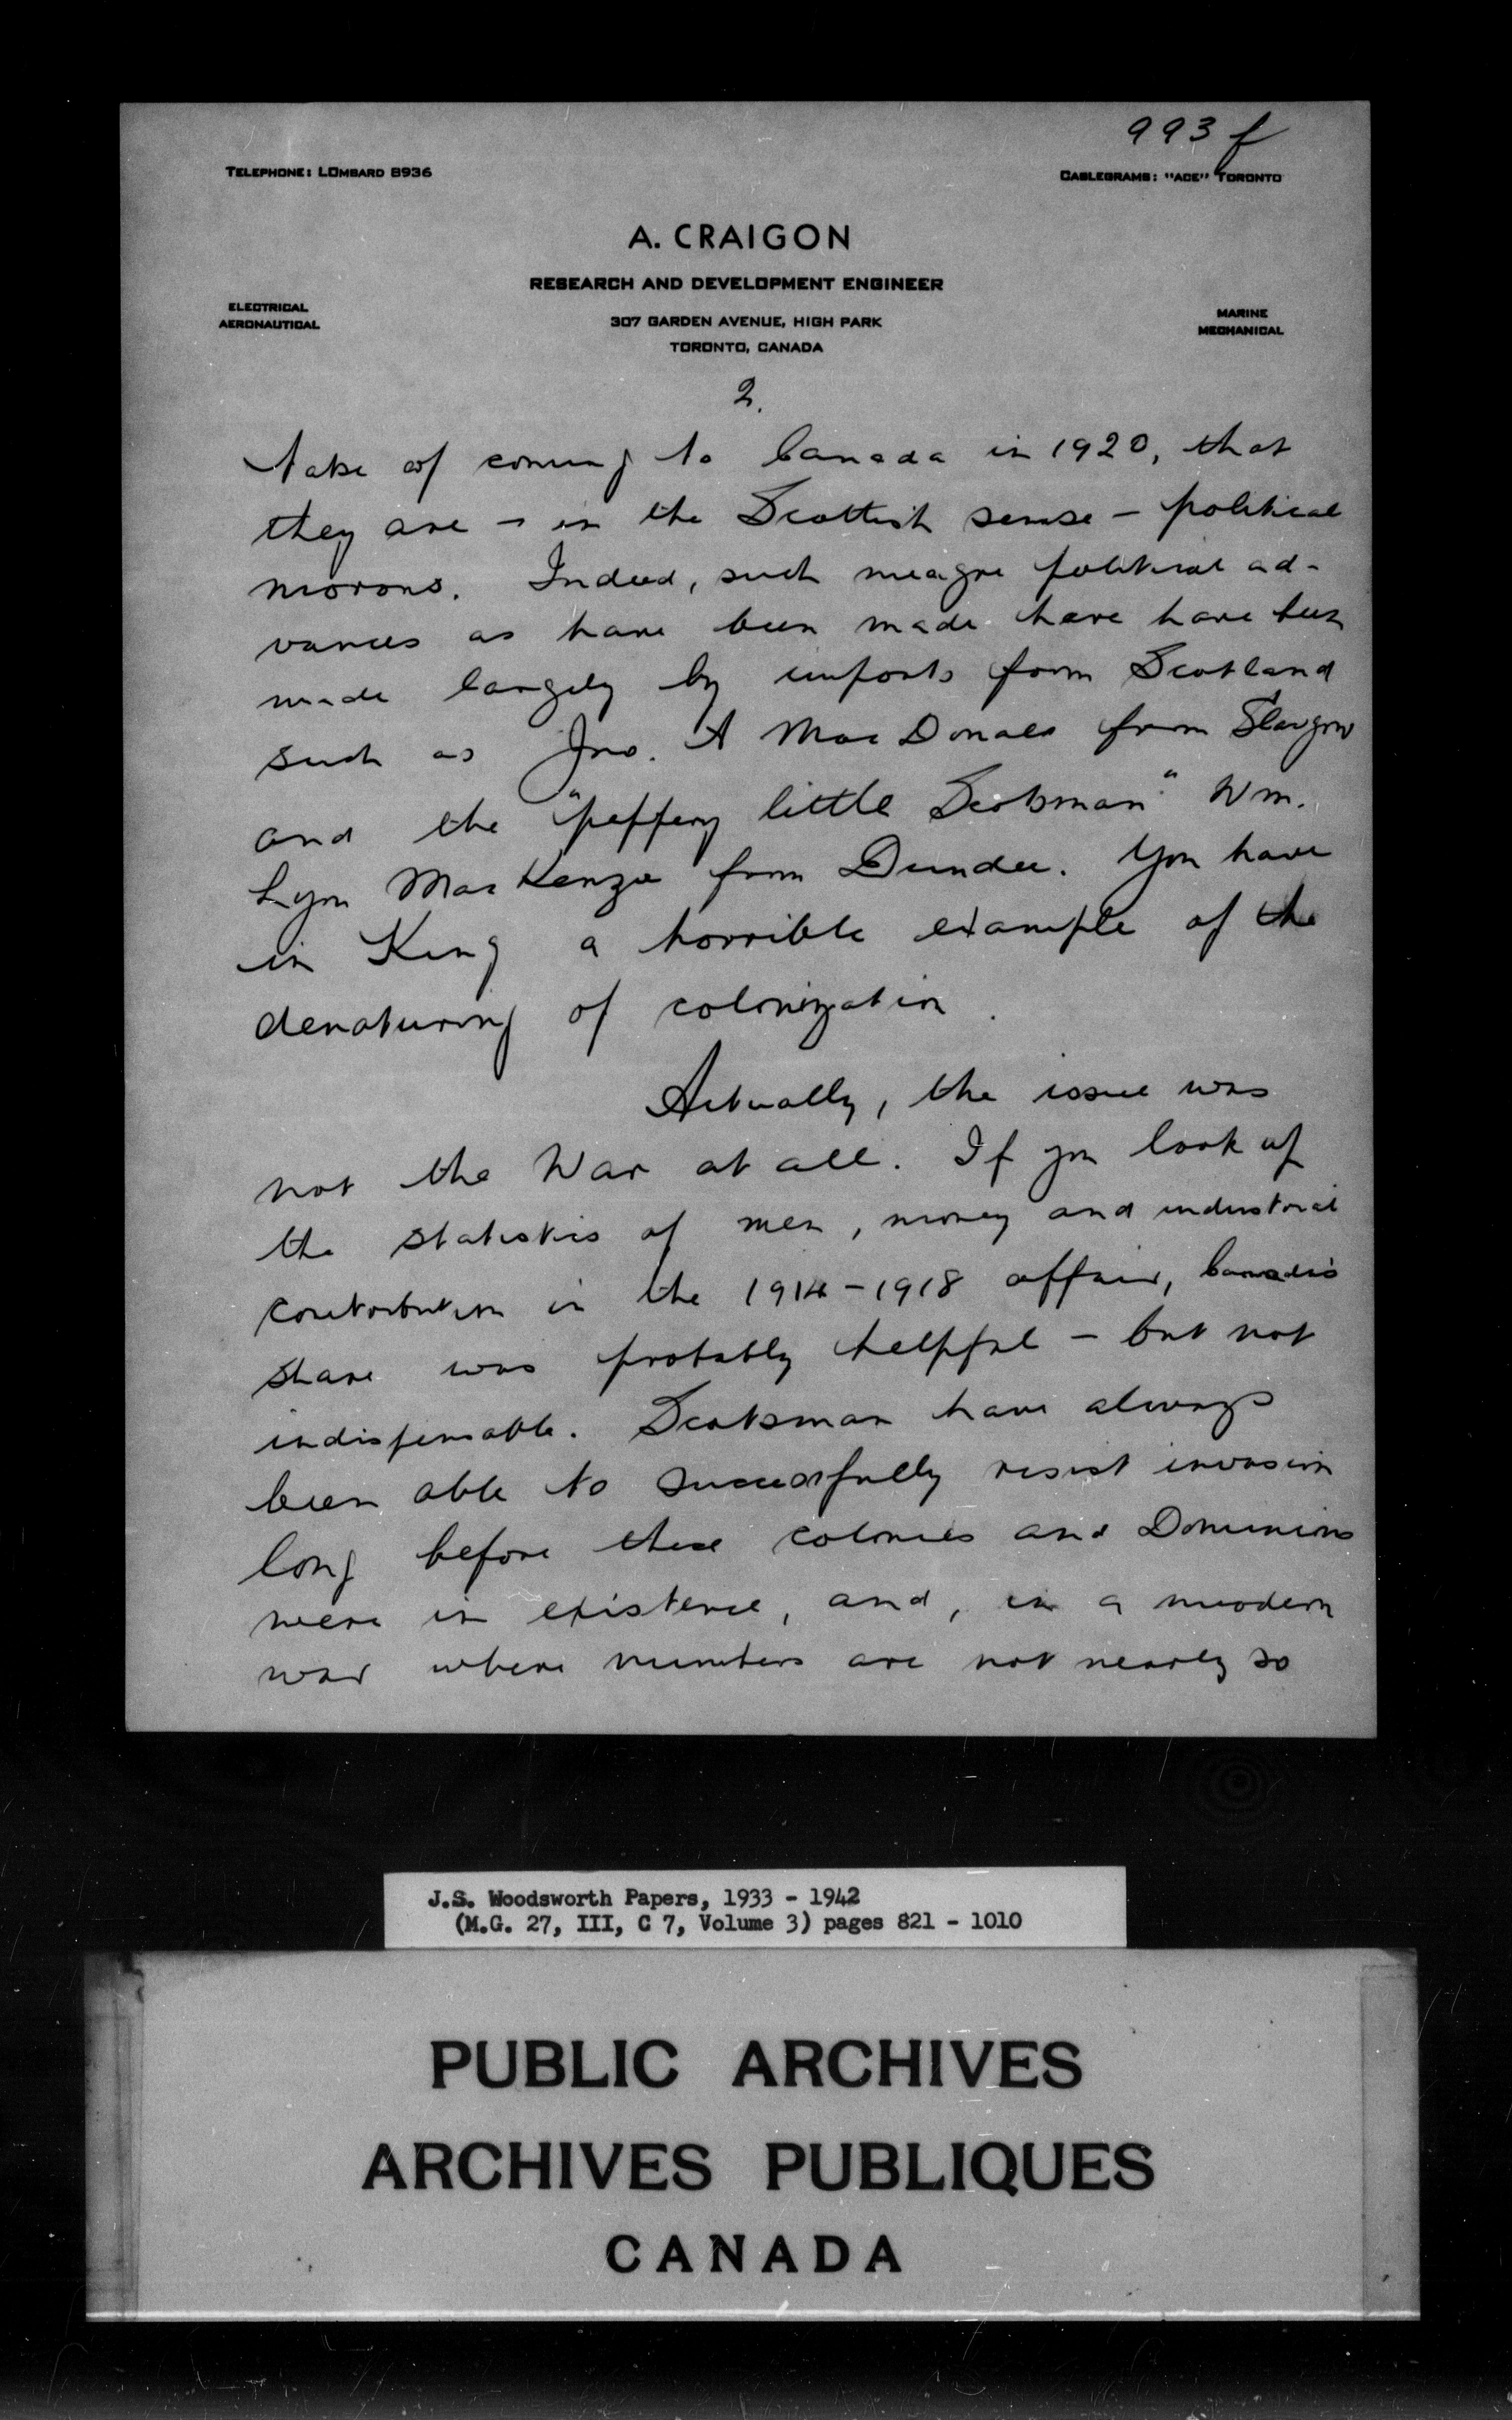 993 f
TELEPHONE: LOMBARD 8936
CABLEGRAMS: "ACE" TORONTO
A. CRAIGON
RESEARCH AND DEVELOPMENT ENGINEER
ELECTRICAL
AERONAUTICAL
307 GARDEN AVENUE, HIGH PARK
TORONTO, CANADA
MARINE
MECHANICAL
2.
take of coming to Canada in 1920, that
they are - in the Scottish sense - political
morons. Indeed, such meagre political ad-
vances as have been made here have been
made largely by imports from Scotland
such as Jno. A MacDonald from Glasgow
and the "peppery little Scotsman" Wm.
Lyon MacKenzie from Dundee. You have
in King a horrible example of the
denaturing of colonization.
Actually, the issue was
not the War at all. If you look up
the statistics of men, money and industrial
contribution in the 1914-1918 affair, Canada's
share was probably helpful - but not
indispensable. Scotsman have always
been able to successfully resist invasion
long before these colonies and Dominions
were in existence, and, in a modern
war where numbers are not nearly so
J.S. Woodsworth Papers, 1933 - 1942
(M.G. 27, III, C 7, Volume 3) pages 821 - 1010
PUBLIC ARCHIVES
ARCHIVES PUBLIQUES
CANADA